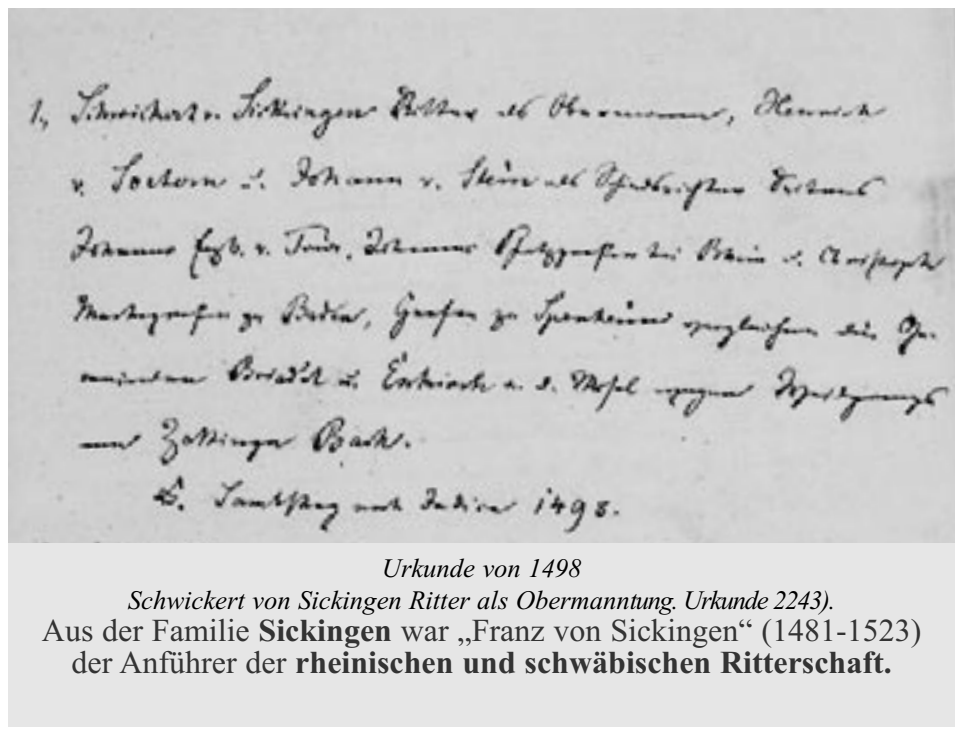 1, Schwickert v. Sickingen Ritter als Obermann, Henrich
v. Soetern u. Johann v. Stein als Schiedsrichter
Johanns Erzb. v. Trier, Johanns Pfalzgrafen bei Rhein u. Christoph
Markgrafen zu Baden, Grafen zu Sponheim vergleichen die Ge-
meinden u. Enkirch a. d. Mosel wegen
Bach.
D. Samstag nach 1498.
Urkunde von 1498
Schwickert von Sickingen Ritter als Obermanntung. Urkunde 2243).
Aus der Familie Sickingen war „Franz von Sickingen“ (1481-1523)
der Anführer der rheinischen und schwäbischen Ritterschaft.